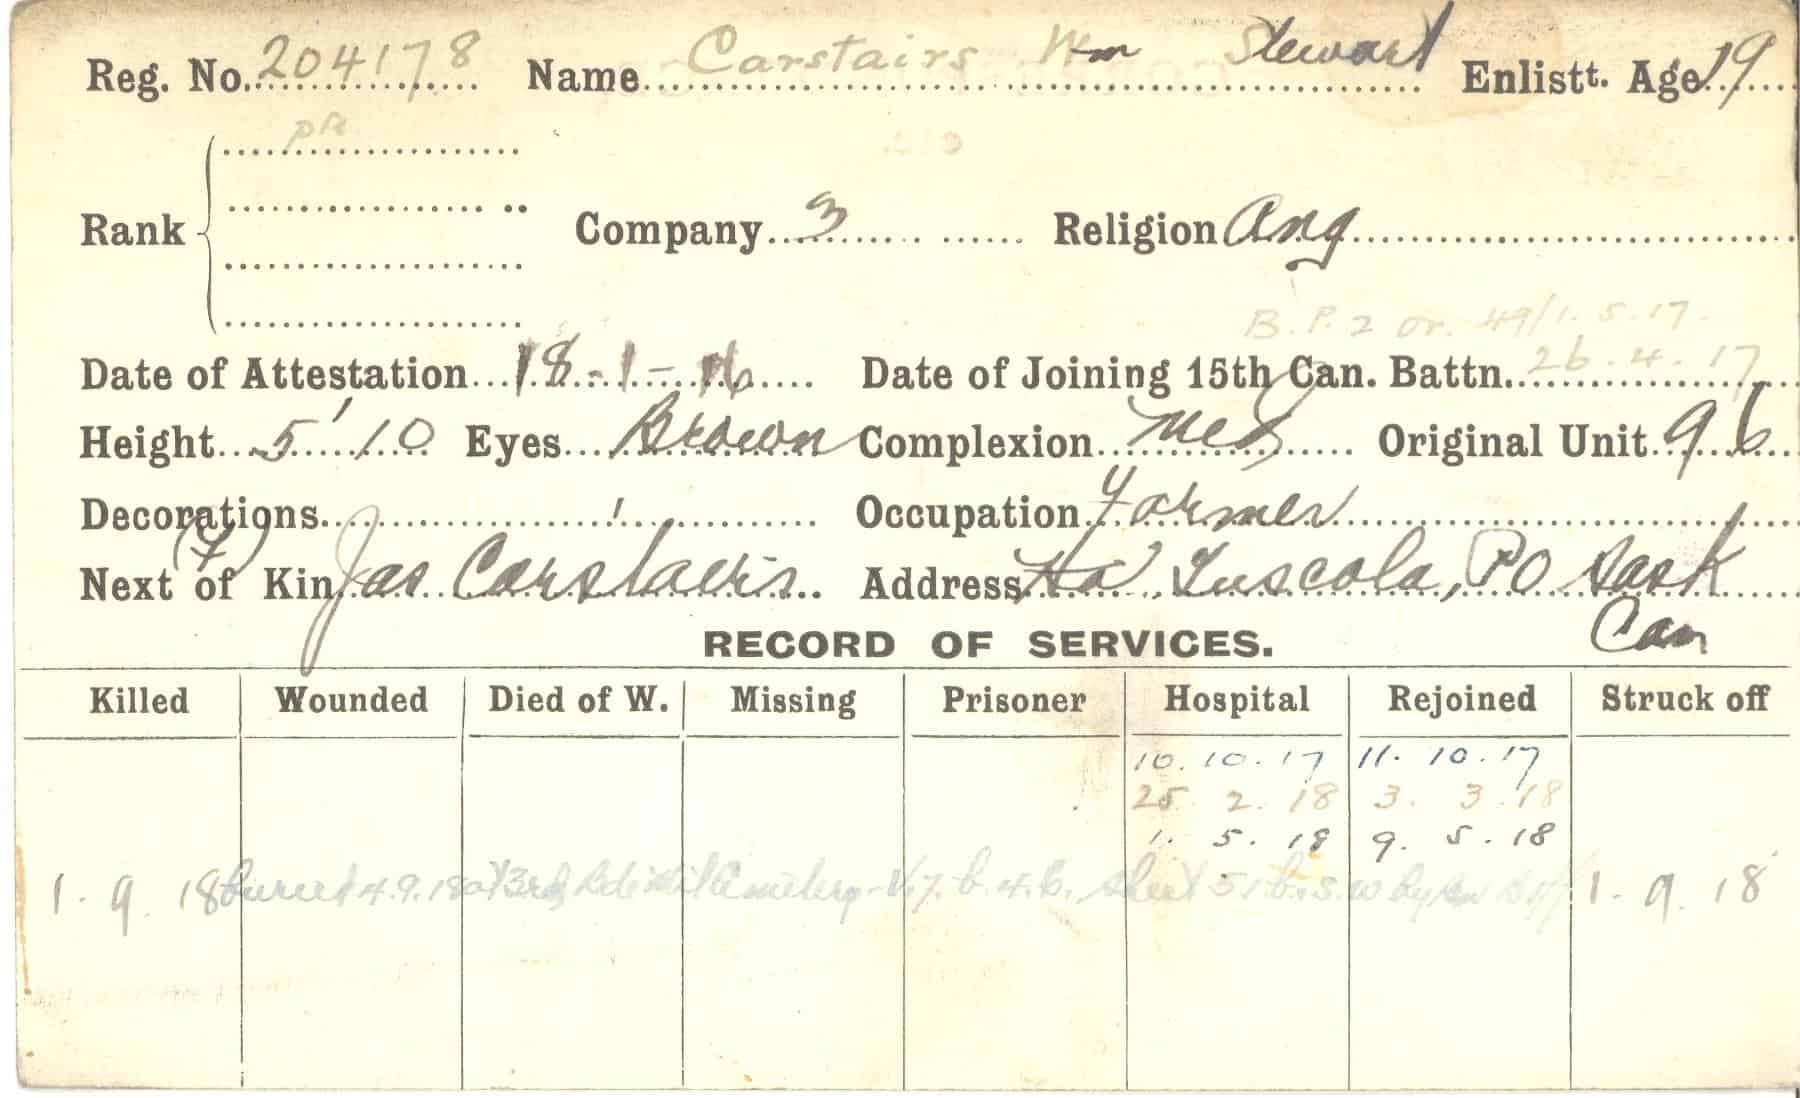 Reg. No. 204178 Name Carstairs Wm Stewart Enlistt. Age 19
pte
Rank Company 3 Religion Ang
B.P. 2 Or. 49/1.5.17.
Date of Attestation 18-1-16 Date of Joining 15th Can. Battn. 26.4.17
Height 5' 10 Eyes Brown Complexion Med Original Unit 96
Decorations Occupation Farmer
(F)
Next of Kin Jas Carstairs Address Tuscola, PO Sask
Can
RECORD OF SERVICES.
Killed Wounded Died of W. Missing Prisoner Hospital Rejoined Struck off
10. 10. 17 11. 10. 17
25 2. 18 3. 3. 18
1. 5. 18 9. 5. 18
1. 9. 18 buried 4.9.18 at 3rd Cemetery - V.7.b.4.6. Sheet 51b. S.W. by 1. 9. 18